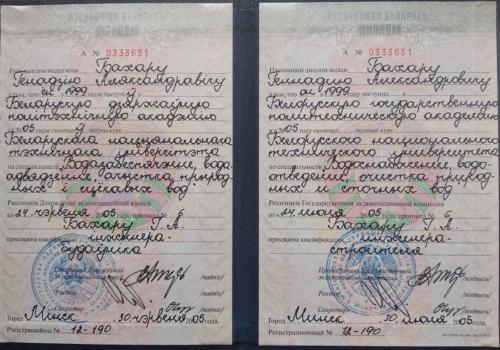 А № 0333631
Гэты дыплом выдадзены Бахару
Генадзію Аляксандравічу
у тым, што ён у 1999 годзе паступіў у
Беларускую дзяржаўную
політэхнічную акадэмію
і ў 2005 годзе скончыў поўны курс
Беларускага нацыянальнага
тэхнічнага універсітэта
па спецыяльнасці Водазабеспячэнне, вода-
адвядзенне, ачыстка прырод-
ных і сцёкавых вод.
Рашэннем Дзяржаўнай экзаменацыйнай камісіі
ад 24 чэрвеня 2005 года, пратакол № 6
Бахару Г. А.
прысвоена кваліфікацыя інжынера-
будаўніка
Старшыня Дзяржаўнай
экзаменацыйнай камісіі /подпіс/
Рэктар /подпіс/
Сакратар /подпіс/
Горад Мінск, 30 чэрвеня 2005 года.
Рэгістрацыйны № 12-190
А № 0333631
Настоящий диплом выдан Бахару
Геннадию Александровичу
в том, что он в 1999 году поступил в
Белорусскую государственную
политехническую академию
и в 2005 году окончил полный курс
Белорусского национального
технического университета
по специальности Водоснабжение, водо-
отведение, очистка природ-
ных и сточных вод
Решением Государственной экзаменационной комиссии
от 24 июня 2005 года, протокол № 6
Бахару Г. А.
присвоена квалификация инженера-
строителя
Председатель Государственной
экзаменационной комиссии /подпись/
Ректор /подпись/
Секретарь /подпись/
Город Минск, 30 июня 2005 года.
Регистрационный № 12-190